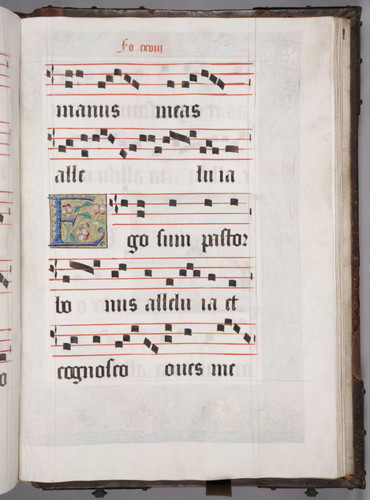 Fo cxviii
manus meas
alle lu ia
Ego sum pastor
bo nus allelu ia et
cognosco oues me